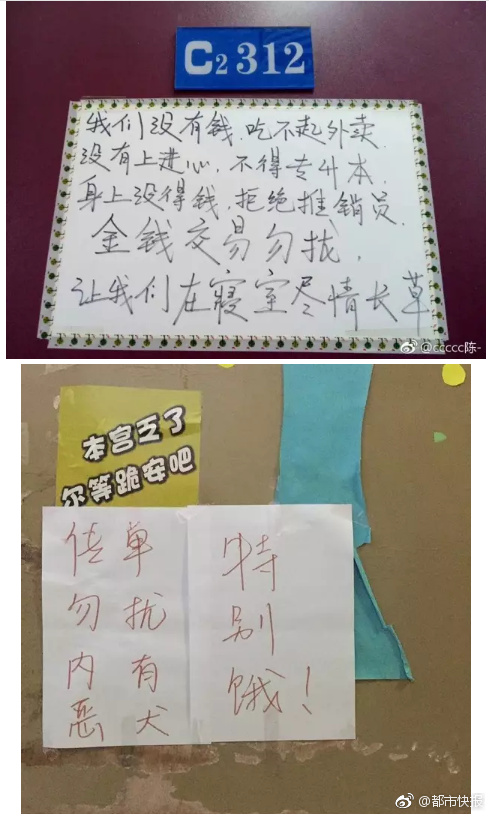 C2 312
我们没有钱.吃不起外卖.
没有上进心,不得专升本.
身上没得钱.拒绝推销员.
金钱交易勿扰,
让我们在寝室尽情长草
@ccccc陈-
本宫乏了
尔等跪安吧
传单
勿扰
内有
恶犬
特
别
饿!
@都市快报